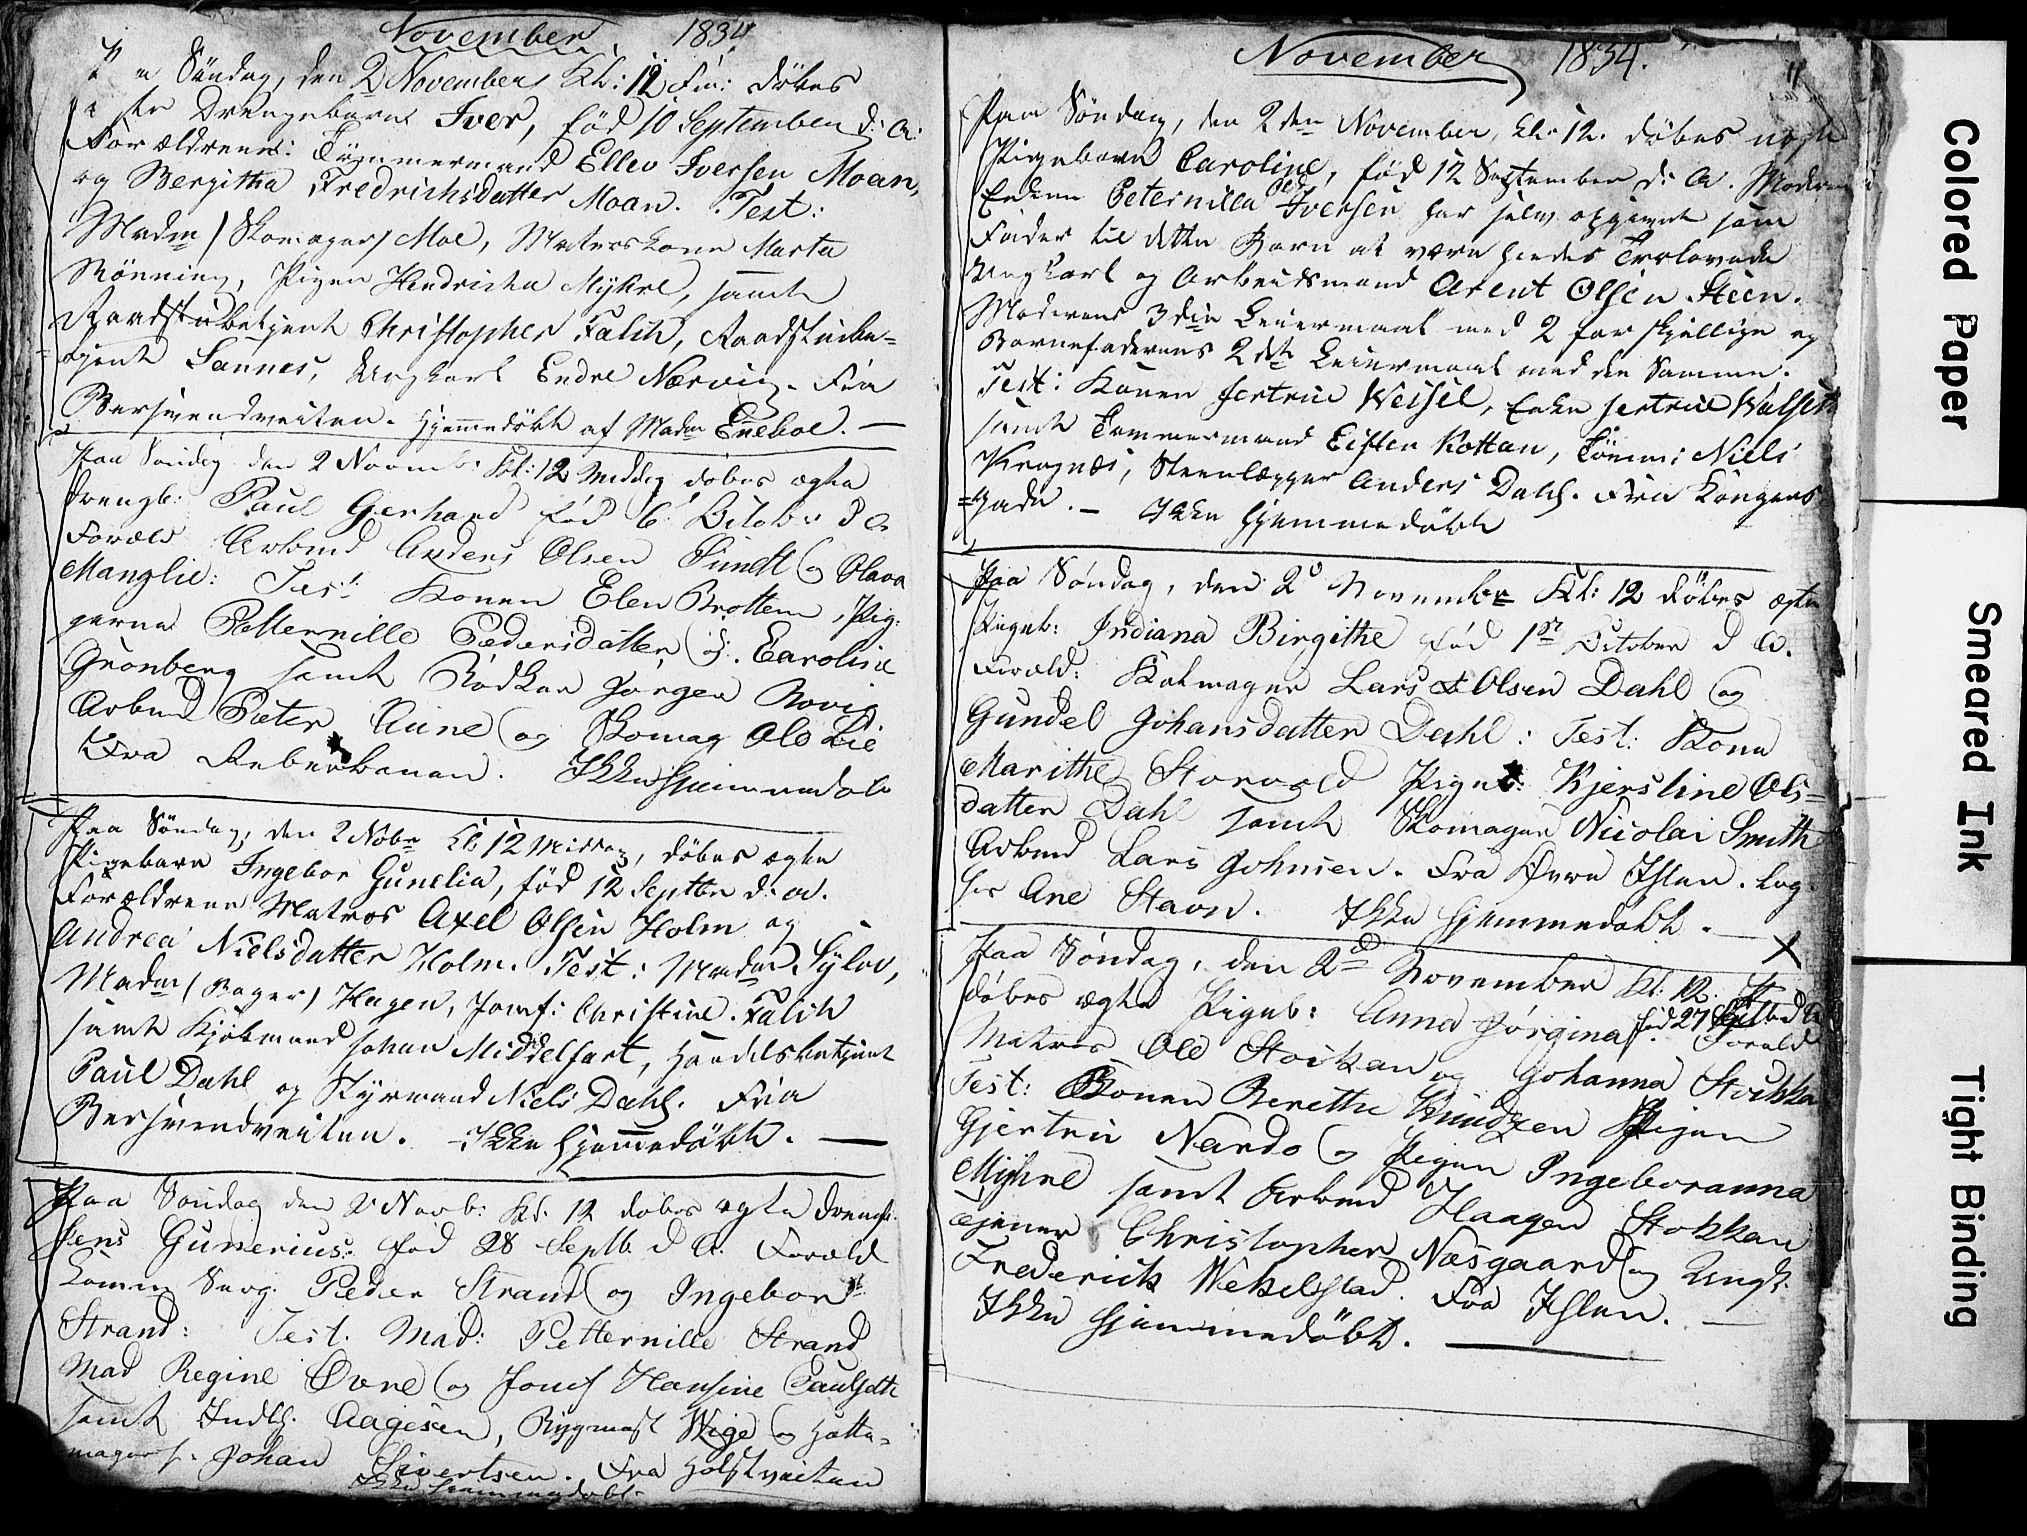 November 1834
Söndag, den 2 November Kl: 12 Fm: döbes
Drengebarn Iver, född 10 September d: A:
Forældrene: Tømmermand Ellev Iversen Moan,
og Bergitha Fredrichsdatter Moan. Test:
Madm / Skomager / Moe, Matroskone Marta
Rönning, Pigen Hendricka Myhre, samt
Raadstubetjent Christopher Falch, Raadstube-
tjent Sannes, Ungkarl Endre Nærvig. Fra
Bersvendveiten. Hjemmedöbt af Madm Eneboe. —
Paa Söndag den 2 Novemb: Kl: 12 Middag döbes ægte
Drengb: Paul Gerhard föd 6 Octob: d A
Foræld Arbmd Anders Olsen Sundt og Olava
Manglie: Test: Konen Elen Brottem, Pig:
gerne Petternille Pedersdatter og Caroline
Gronberg samt Bödker Jorgen Rovig
Arbmd Peter Aune og Skomag Ole Lie
Fra Reberbanen. Ikke Hjemmedobt
Paa Söndag, den 2 Nobr Kl 12 Middag, döbes ægte
Pigebarn Ingebor Gunelia, föd 12 Septbr d: A.
Forældrene Matros Axel Olsen Holm og
Andrea Nielsdatter Holm. Test: Madm Sylov,
Madm / Bager / Hagen, Jomf: Christine Falch
samt Kjöbmand Johan Middelfart, Handelsbetjent
Paul Dahl og Styrmand Niels Dahl. Fra
Bersvendveiten. — Ikke Hjemmedöbt. —
Paa Söndag den 2 Novb: Kl. 12 dobes ægte Drengb.
Jens Gunerius: föd 28 Septb. d A. Foræld
Peder Strand og Ingebor
Strand: Test. Mad: Petternille Strand
Mad Regine Øvre og Jomf Hansine Paulsdtt
samt Aagesen, Wige og Hatte-
mager s. Johan Sivertsen. Fra Holstveiten
Ikke Hjemmedobt.
November 1834.
Paa Söndag, den 2den November, Kl. 12. döbes uægte
Pigebarn Caroline, föd 12 September d: A. Moderen
Enken Peternilla Iversen har selv opgivet som
Fader til dette Barn at være hendes Trolovede
Ungkarl og Arbeidsmand Arent Olsen Steen.
Moderens 3die Leiermaal med 2 forskjellige og
Barnefaderens 2det Leiermaal med den Samme.
Test: Konen Jertrue Weisel, Enke Jertrue Walseth
samt Tømmermand Eisten Kottan, Tömm: Niels
Kragnæs, Steenlægger Anders Dahl. Fra Kongens
=gade. — Ikke Hjemmedöbt
Paa Söndag, den 2d November Kl: 12 döbes ægte
Pigeb: Indiana Birgithe föd 1st October d A.
Foræld: Skomager Lars Olsen Dahl og
Gundel Johansdatter Dahl: Test: Kone
Marithe Storvold Pigeb: Kjerstine Ols=
datter Dahl samt Skomager Nicolai Smith
Arbmd Lars Johnsen. Fra Øvre Ihlen. Log.
hos Ane Stavn. Ikke Hjemmedobt. —
Paa Söndag, den 2d November Kl: 12.
döbes ægte Pigeb: Anna Jörgina föd 27 Foræld
Matros Ole Stockan og Johanna Stokka
Test: Konen Berethe Knudzen Pigen
Gjertru Nardo og Pigen Ingeboranna
Myhre samt Arbmd Haagen Stokkan
Tjener Christopher Næsgaard og Ungk:
Frederich Wekelstad. Fra Ihlen. —
Ikke Hjemmedöbt. —
Colored Paper
Smeared Ink
Tight Binding